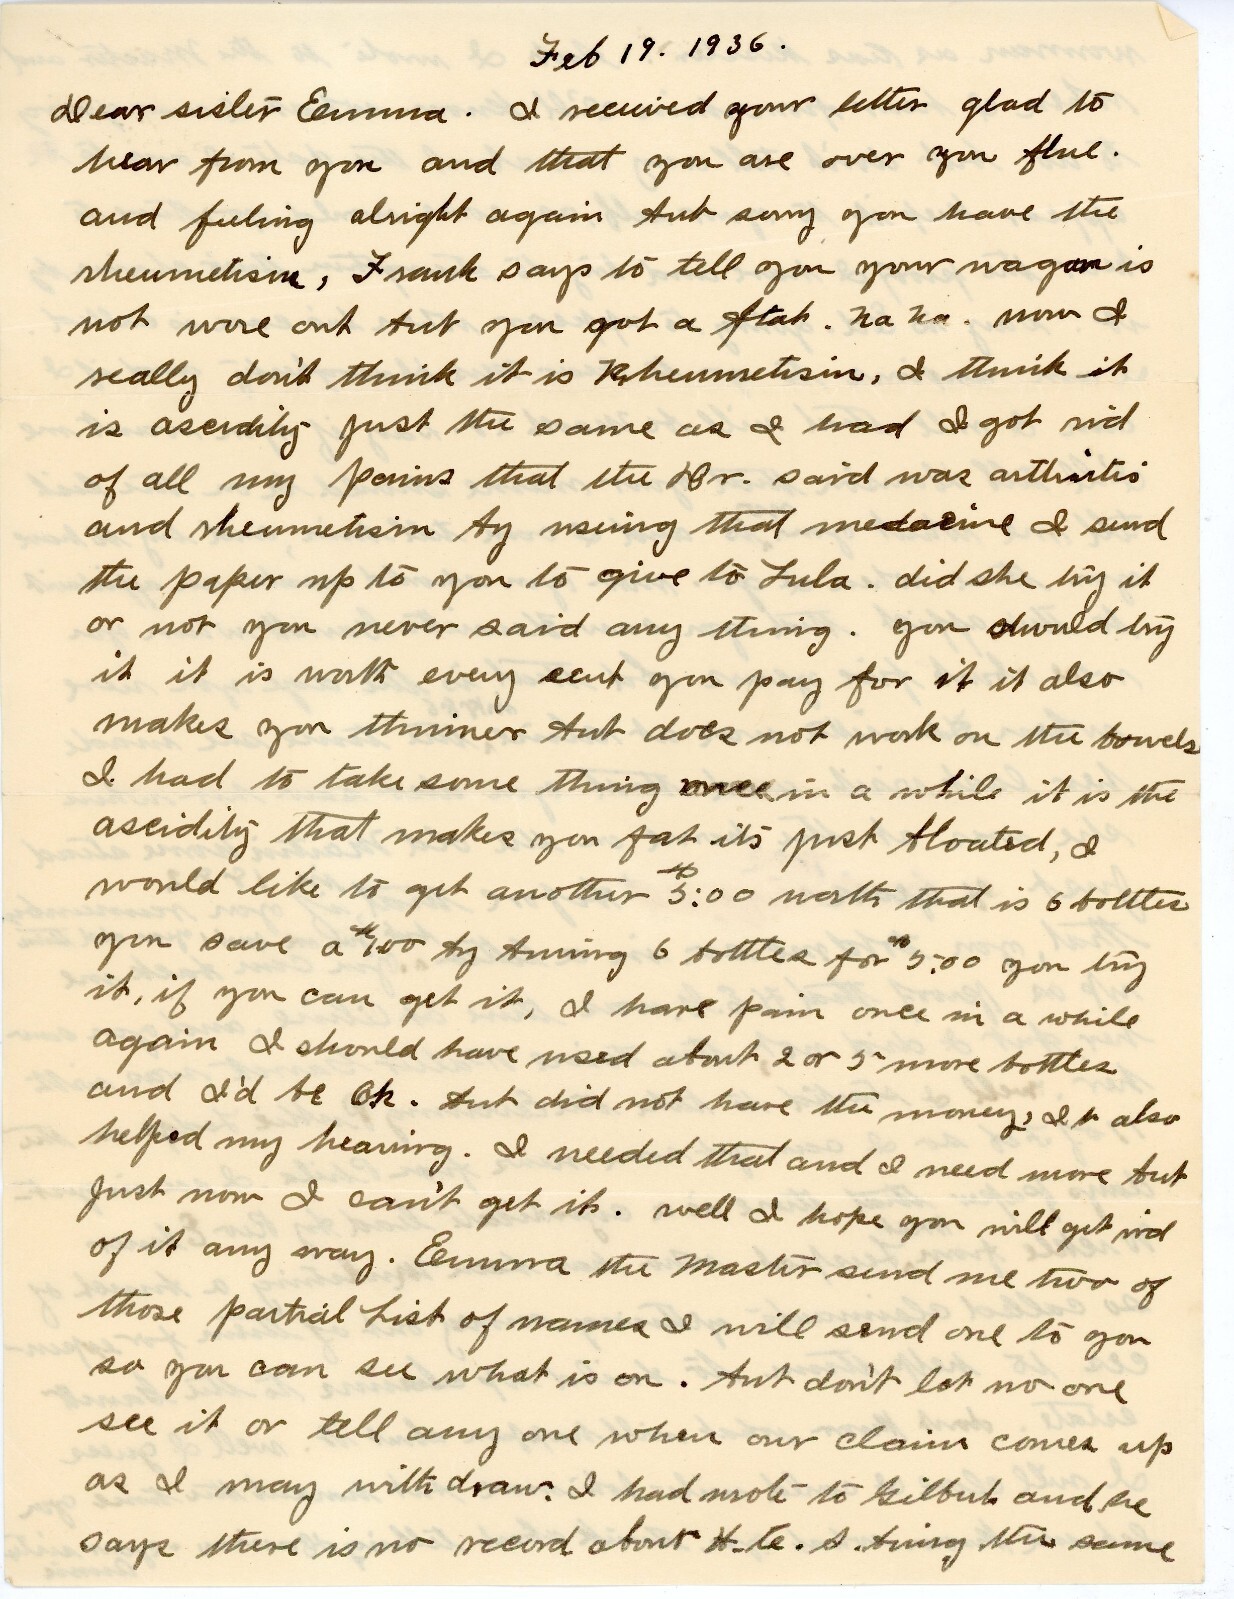 Feb 19. 1936.
Dear sister Emma. I received your letter glad to
hear from you and that you are over you flue.
and feeling alright again but sorry you have the
rheumetisim, Frank says to tell you your wagon is
not wore out but you got a flat. ha ha. now I
really don't think it is Rheumetisim, I think it
is ascidity just the same as I had I got rid
of all my pains that the Dr. said was arthritis
and rheumetisim by useing that medacine I send
the paper up to you to give to Lula. did she try it
or not you never said any thing. you should try
it it is worth every cent you pay for it it also
makes you thinner but does not work on the bowels
I had to take some thing once in a while it is the
ascidity that makes you fat its just bloated, I
would like to get another $5:00 worth that is 6 bottles
you save a $1.00 by buing 6 bottles for $5.00 you try
it, if you can get it, I have pain once in a while
again I should have used about 2 or 5 more bottles
and I'd be Ok. but did not have the money, It also
helped my hearing. I needed that and I need more but
just now I can't get it. well I hope you will get rid
of it any way. Emma the Master send me two of
those partial List of names I will send one to you
so you can see what is on. but don't let no one
see it or tell any one when our claim comes up
as I may with draw. I had wrote to Gilbut and he
says there is no record about H. S. being the same